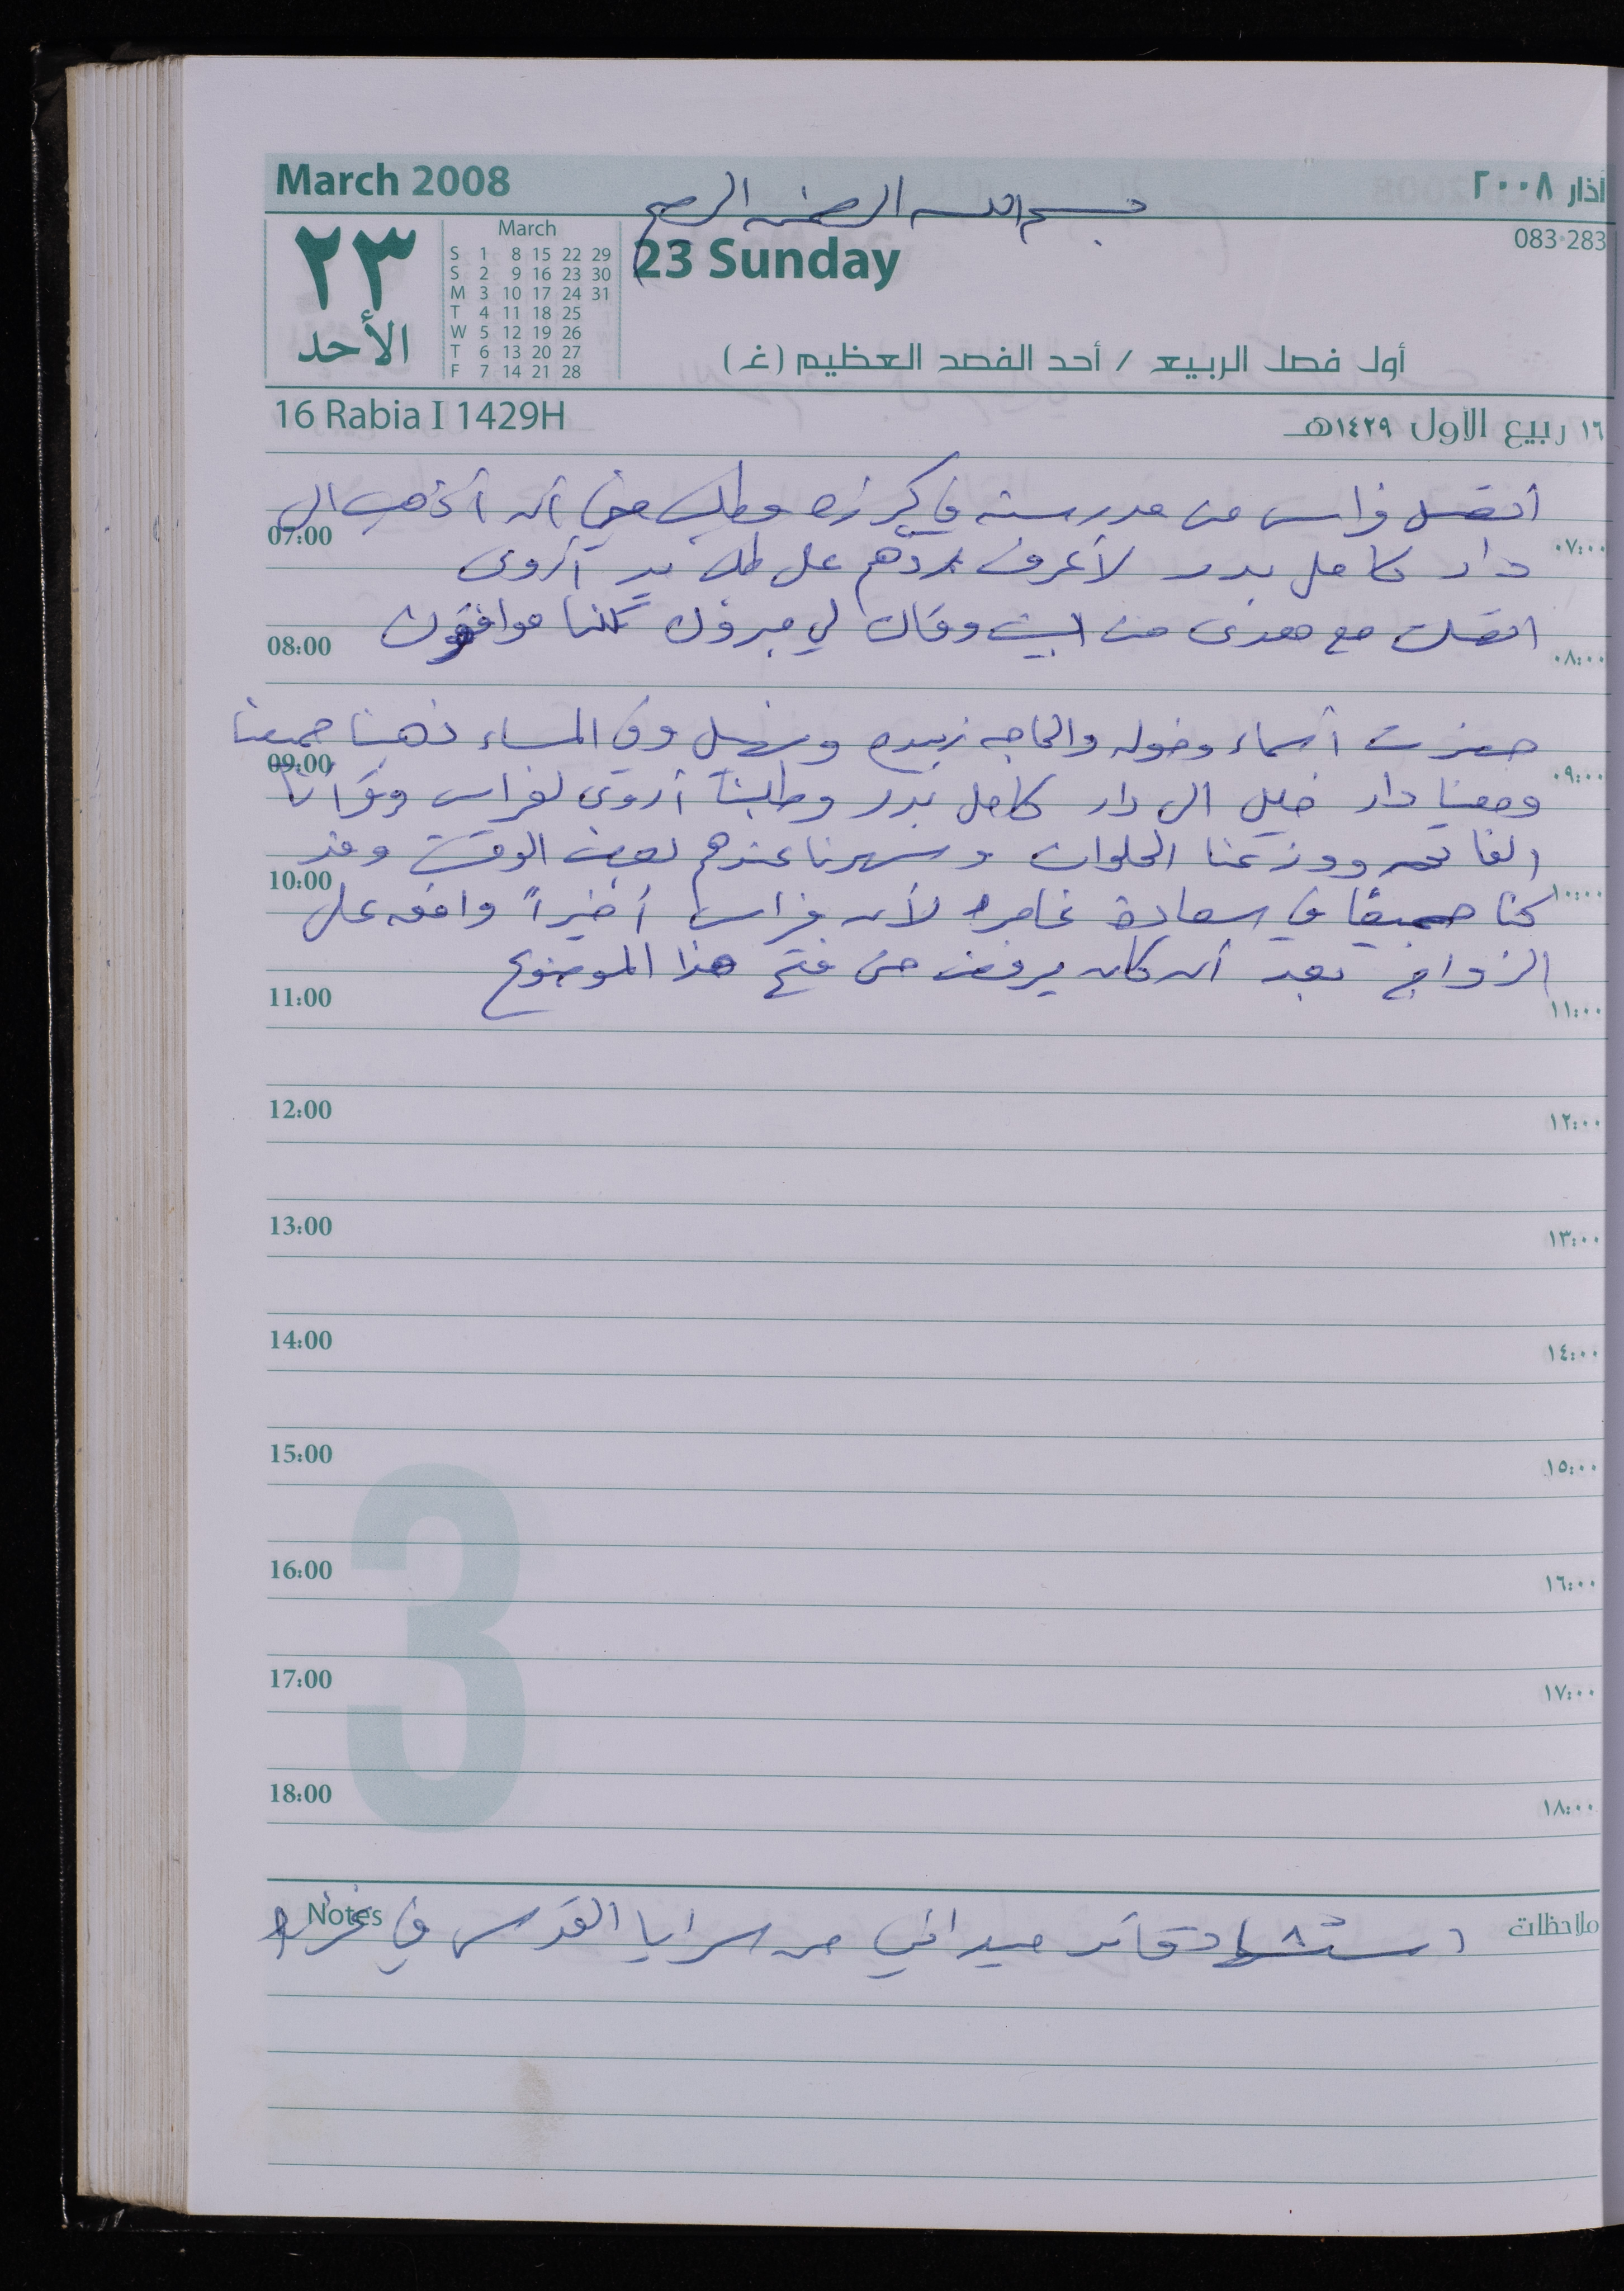 March 2008
آذار ٢٠٠٨
بسم الله الرحمن الرحيم
٢٣
الأحد
March
S 1 8 15 22 29
S 2 9 16 23 30
M 3 10 17 24 31
T 4 11 18 25
W 5 12 19 26
T 6 13 20 27
F 7 14 21 28
23 Sunday
083-283
أول فصل الربيع / أحد الفصد العظيم (غ)
16 Rabia I 1429H
١٦ ربيع الأول ١٤٢٩هـ
أتصل فراس من مدرسته في كرزه وطلب مني أن أذهب الى
07:00 ٠٧:٠٠
دار كامل بدر لأعرف ردهم على طلب يد أروى
اتصلت مع معدى من البيت وقال لي مبروك كلنا موافقون
08:00 ٠٨:٠٠
حضرت أسماء وخوله والحاجه زبيده ونهيل وفي المساء ذهبنا جميعنا
09:00 ٠٩:٠٠
ومعنا دار خليل الى دار كامل بدر وطلبنا أروى لفراس وقرأنا
الفاتحه ووزعنا الحلوان وسهرنا عندهم بعض الوقت وقد
10:00 ١٠:٠٠
كنا جميعًا في سعادة غامره لأن فراس أخيراً وافق على
الزواج بعد أن كان يرفض حتى فتح هذا الموضوع
11:00 ١١:٠٠
12:00 ١٢:٠٠
13:00 ١٣:٠٠
14:00 ١٤:٠٠
15:00 ١٥:٠٠
16:00 ١٦:٠٠
17:00 ١٧:٠٠
18:00 ١٨:٠٠
3
Notes ملاحظات
استشهاد قائد ميداني من سرايا القدس في غزه